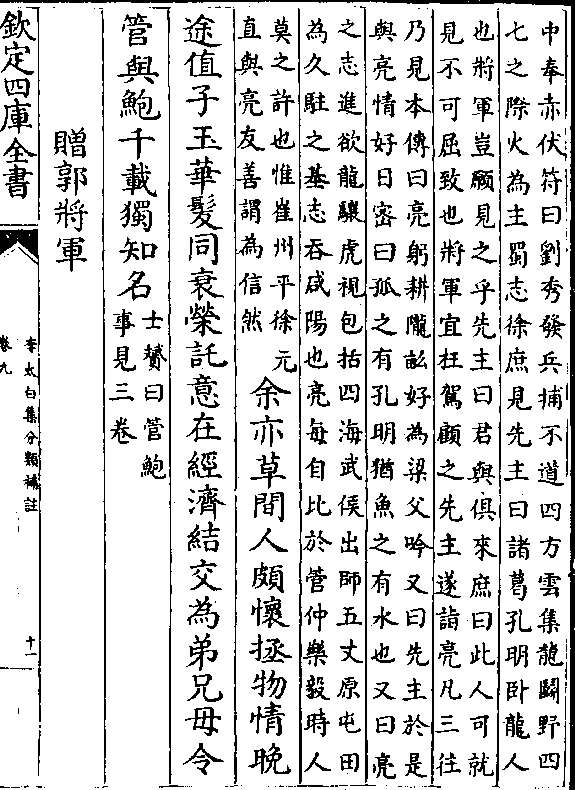 中奉赤伏符曰劉秀發兵捕不道四方雲集龍鬭野四
七之際火為主蜀志徐庶見先主曰諸葛孔明卧龍人
也將軍豈願見之乎先主曰君與俱來庶曰此人可就
見不可屈致也將軍宜枉駕顧之先主遂詣亮凡三往
乃見本傳曰亮躬耕隴畝好為梁父吟又曰先主於是
與亮情好日密曰孤之有孔明猶魚之有水也又曰亮
之志進欲龍驤虎視包括四海武侯出師五丈原屯田
為久駐之基志吞咸陽也亮每自比於管仲樂毅時人
莫之許也惟崔州平徐元
直與亮友善謂為信然
余亦草間人頗懷拯物情晚
途值子玉華髮同衰榮託意在經濟結交為弟兄毋令
管與鮑千載獨知名
士贇曰管鮑
事見三卷
贈郭將軍
欽定四庫全書
李太白集分類補註
卷九
十一